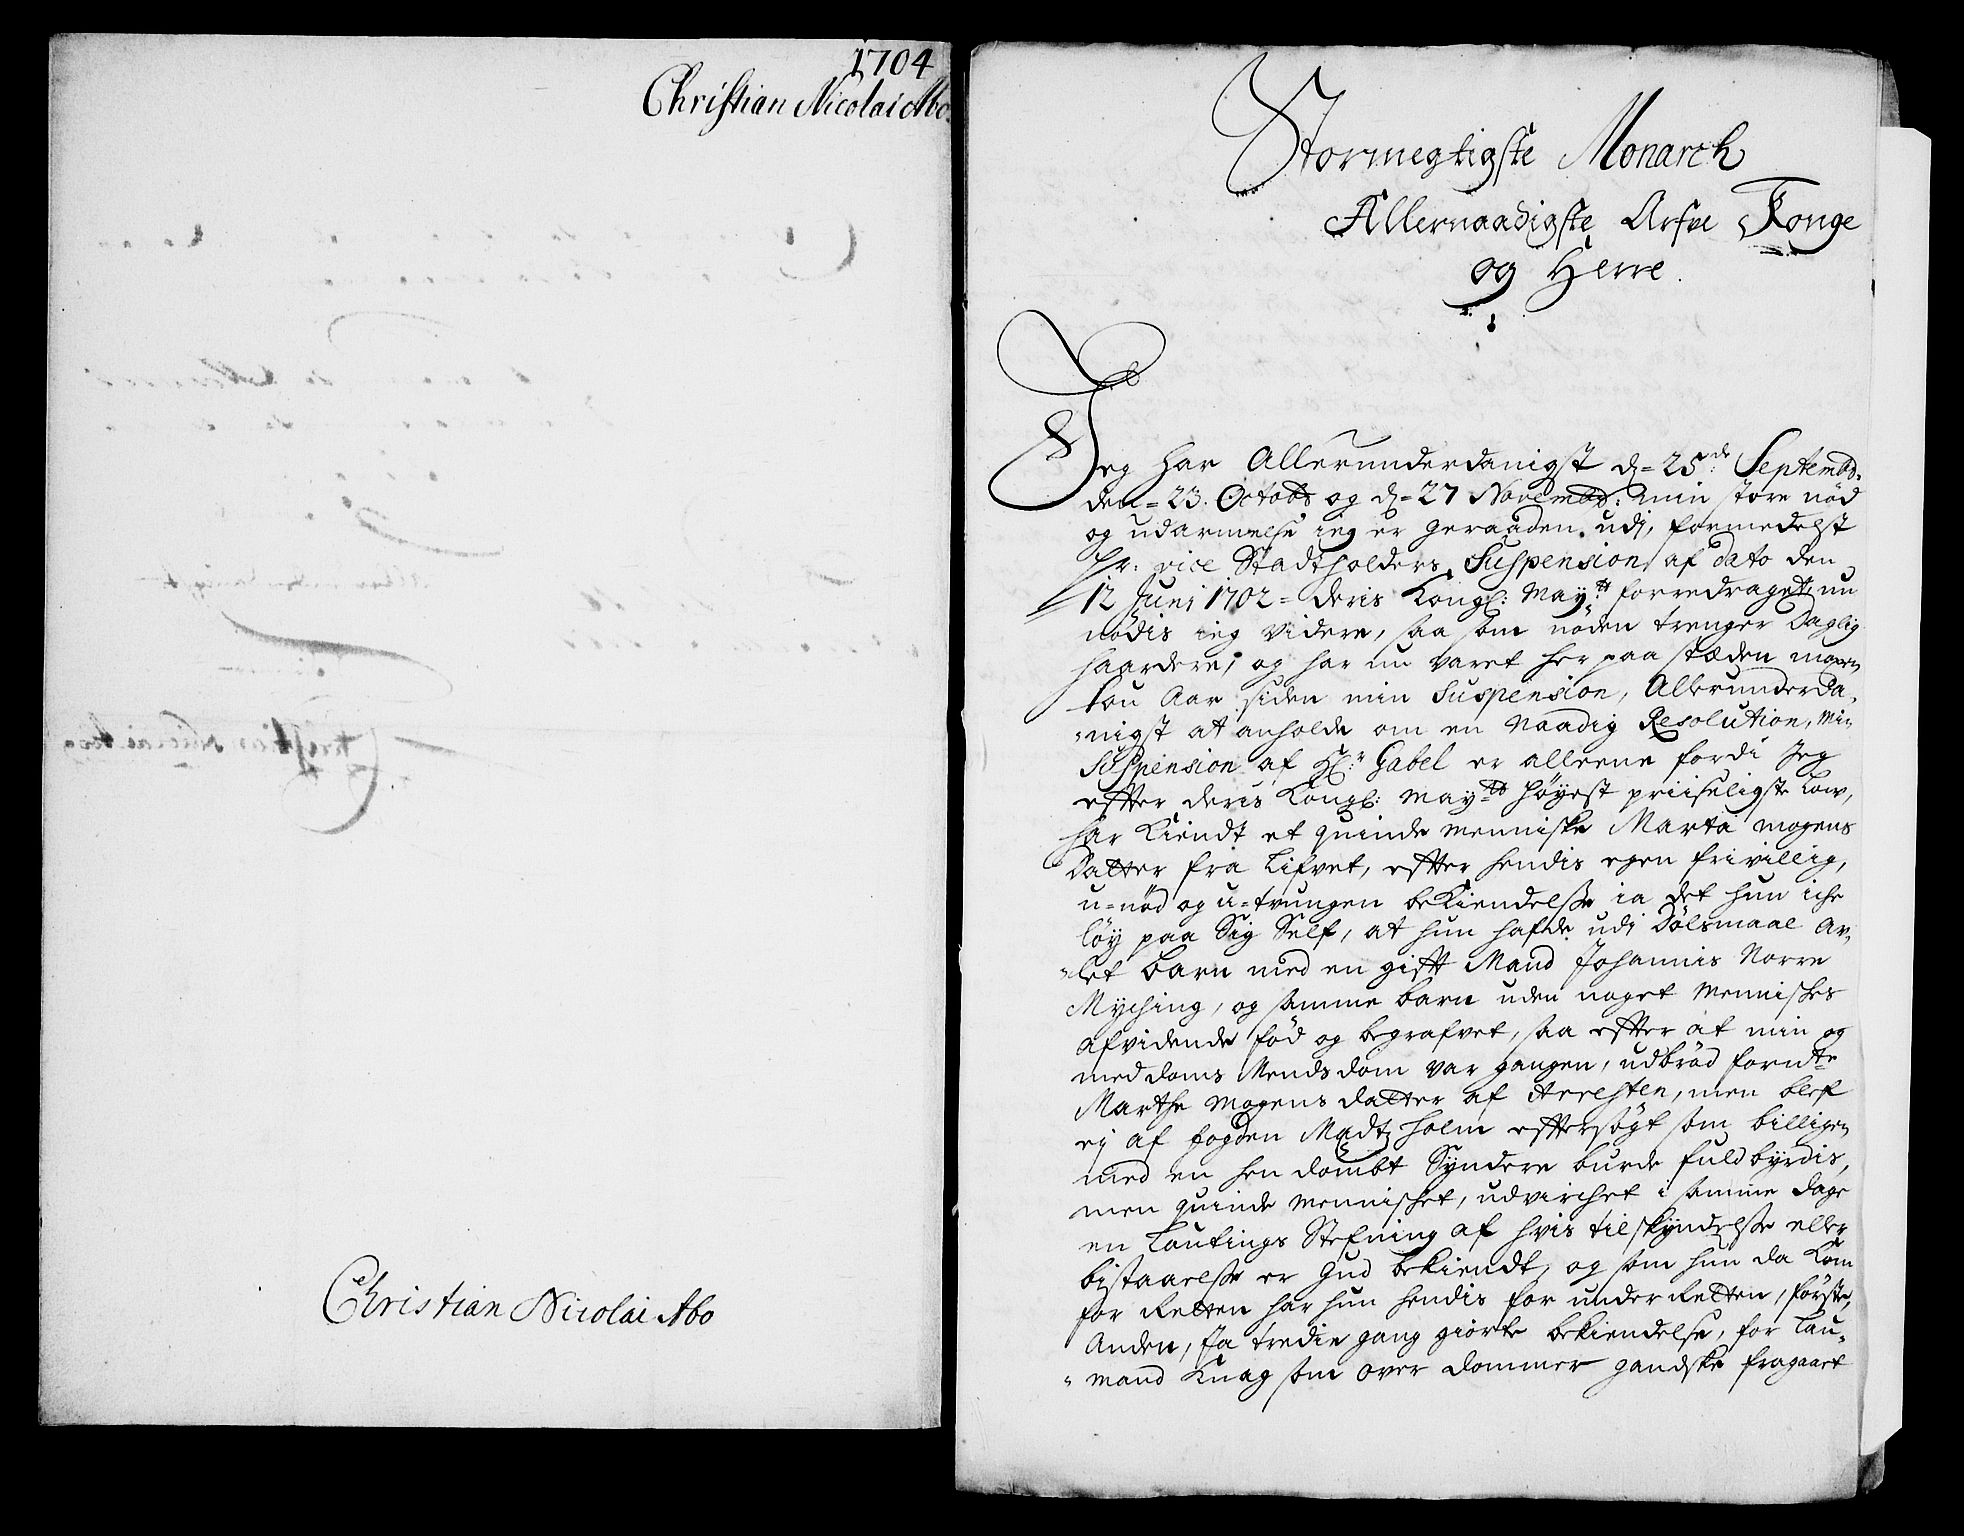 1704
Christian Nicolai Abo.
Christian Nicolai Abo
Stormegtigste Monarch
Allernaadigste Arfve Konge
og Herre.
Jeg har Allerunderdanigst d= 25de Septembr:
den= 23. Octobr og d= 27 Novembr: min store nød
og udarmelse ieg er geraaden udj, formedelst
Hr: vice Stadtholders Suspension af dato den
12 Junj 1702= deris Kongl: May:tt forredraget, nu
nødis ieg videre, saa som nøden trenger Daglig
haardere, og har nu varet her paa stæden
tou Aar siden min Suspension, Allerunderda-
nigst at anholde om en Naadig Resolution, Min
Suspension af Hr: Gabel er alleene fordi Jeg
effter deris Kongl: May:tts høyest priiseligste Low,
har Kiendt et quinde menniske Marta mogens
Datter fra Lifvet, effter hendis egen frivillig,
u=nød og u=tvungen bekiendelsse ia det hun iche
løy paa Sig Self, at hun hafde udj Dølsmaal Av-
let barn med en gifft Mand Johannis Norre
Myching, og samme barn uden noget Mennisches
afvidende fød og begrafvet, saa effter at min og
meddoms Mends dom var gangen, udbrød forndte
Marthe Mogens datter af Arresten, men blef
ej af fogden Madtz holm efftersøgt som billigen
med en hen dømbt Syndere burde fuldbyrdis,
men quinde Mennischet, udvirchet i samme dage
en Lautings Stefning af hvis tilskyndelsse eller
bistaaelsse er Gud bekiendt, og som hun da Kom
for Retten har hun hendis for under Retten, første,
Anden, Ja tredie gang giorte bekiendelse, for Lau-
mand Knag som over dommer gandske fragaaet